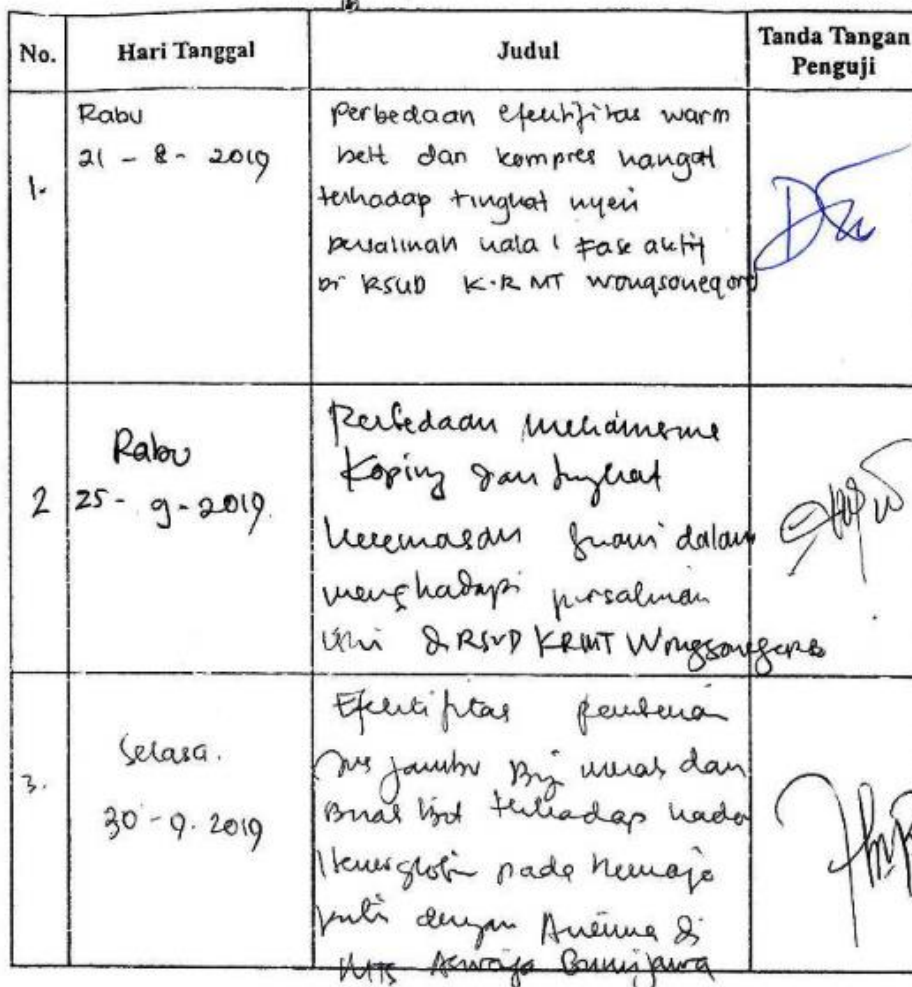 No. Hari Tanggal Judul Tanda Tangan
Penguji
Rabu
21 - 8 - 2019
1.
Perbedaan efektifitas warm
belt dan kompres hangat
terhadap tingkat nyeri
persalinan kala 1 Fase aktif
Di RSUD K.R MT Wongsonegoro
2
Rabu
25 - 9 - 2019.
Perbedaan mekanisme
Koping dan tingkat
kecemasan suami dalam
menghadapi persalinan
istri di RSUD KRMT Wongsonegoro
3.
Selasa.
30 - 9. 2019
Efektifitas pemberian
jus jambu Biji merah dan
Buah bit terhadap kadar
Hemoglobin pada Remaja
putri dengan Anemia di
MTS Aswaja Bumijawa